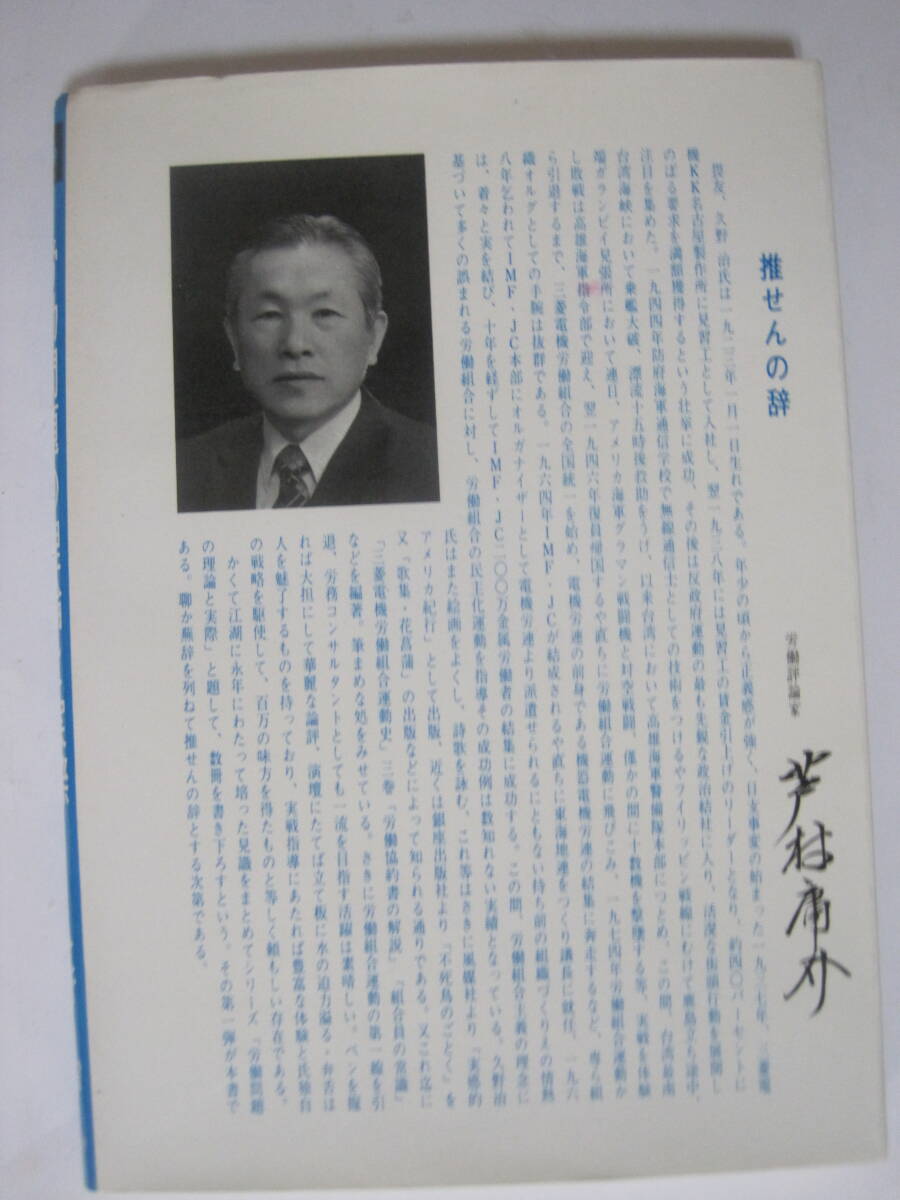 推せんの辞
労働評論家
芦村庸介
畏友、久野 治氏は一九二三年一月一日生れである。年少の頃から正義感が強く、日支事変の始まった一九三七年、三菱電
機KK名古屋製作所に見習工として入社し、翌一九三八年には見習工の賃金引上げのリーダーとなり、約四〇パーセントに
のぼる要求を満額獲得するという壮挙に成功、その後は反政府運動の最も先鋭な政治結社に入り、活溌な街頭行動を展開し
注目を集めた。一九四四年防府海軍通信学校で無線通信士としての技術をつけるやフイリッピン戦線にむけて鹿島立ち途中、
台湾海峡において乗艦大破、漂流十五時後救助をうけ、以来台湾において高雄海軍警備隊本部につとめ、この間、台湾最南
端ガランビイ見張所において連日、アメリカ海軍グラマン戦闘機と対空戦闘、僅かの間に十数機を撃墜する等、実戦を体験
し敗戦は高雄海軍指令部で迎え、翌一九四六年復員帰国するや直ちに労働組合運動に飛びこみ、一九七四年労働組合運動か
ら引退するまで、三菱電機労働組合の全国統一を始め、電機労連の前身である機器電機労連の結集に奔走するなど、専ら組
織オルグとしての手腕は抜群である。一九六四年IMF・JCが結成されるや直ちに東海地連をつくり議長に就任、一九六
八年乞われてIMF・JC本部にオルガナイザーとして電機労連より派遣せられるにともない持ち前の組織づくりえの情熱
は、着々と実を結び、十年を経ずしてIMF・JC二〇〇万金属労働者の結集に成功する。この間、労働組合主義の理念に
基づいて多くの誤まれる労働組合に対し、労働組合の民主化運動を指導その成功例は数知れない実績となっている。久野治
氏はまた絵画をよくし、詩歌を詠む、これ等はさきに風媒社より「実感的
アメリカ紀行」として出版、近くは銀座出版社より「不死鳥のごとく」を
又「歌集・花菖蒲」の出版などによって知られる通りである。又これ迄に
「三菱電機労働組合運動史」三巻「労働協約書の解説」「組合員の常識」
などを編著、筆まめな処をみせている。さきに労働組合運動の第一線を引
退、労務コンサルタントとしても一流を目指す活躍は素晴しい。ペンを握
れば大垣にして華麗な論評、演壇にたてば立て板に水の迫力溢る・弁舌は
人を魅了するものを持っており、実戦指導にあたれば豊富な体験と氏独自
の戦略を駆使して、百万の味方を得たものと等しく頼もしい存在である。
かくて江湖に永年にわたって培った見識をまとめてシリーズ「労働問題
の理論と実際」と題して、数冊を書き下ろすという。その第一弾が本書で
ある。聊か蕪辞を列ねて推せんの辞とする次第である。